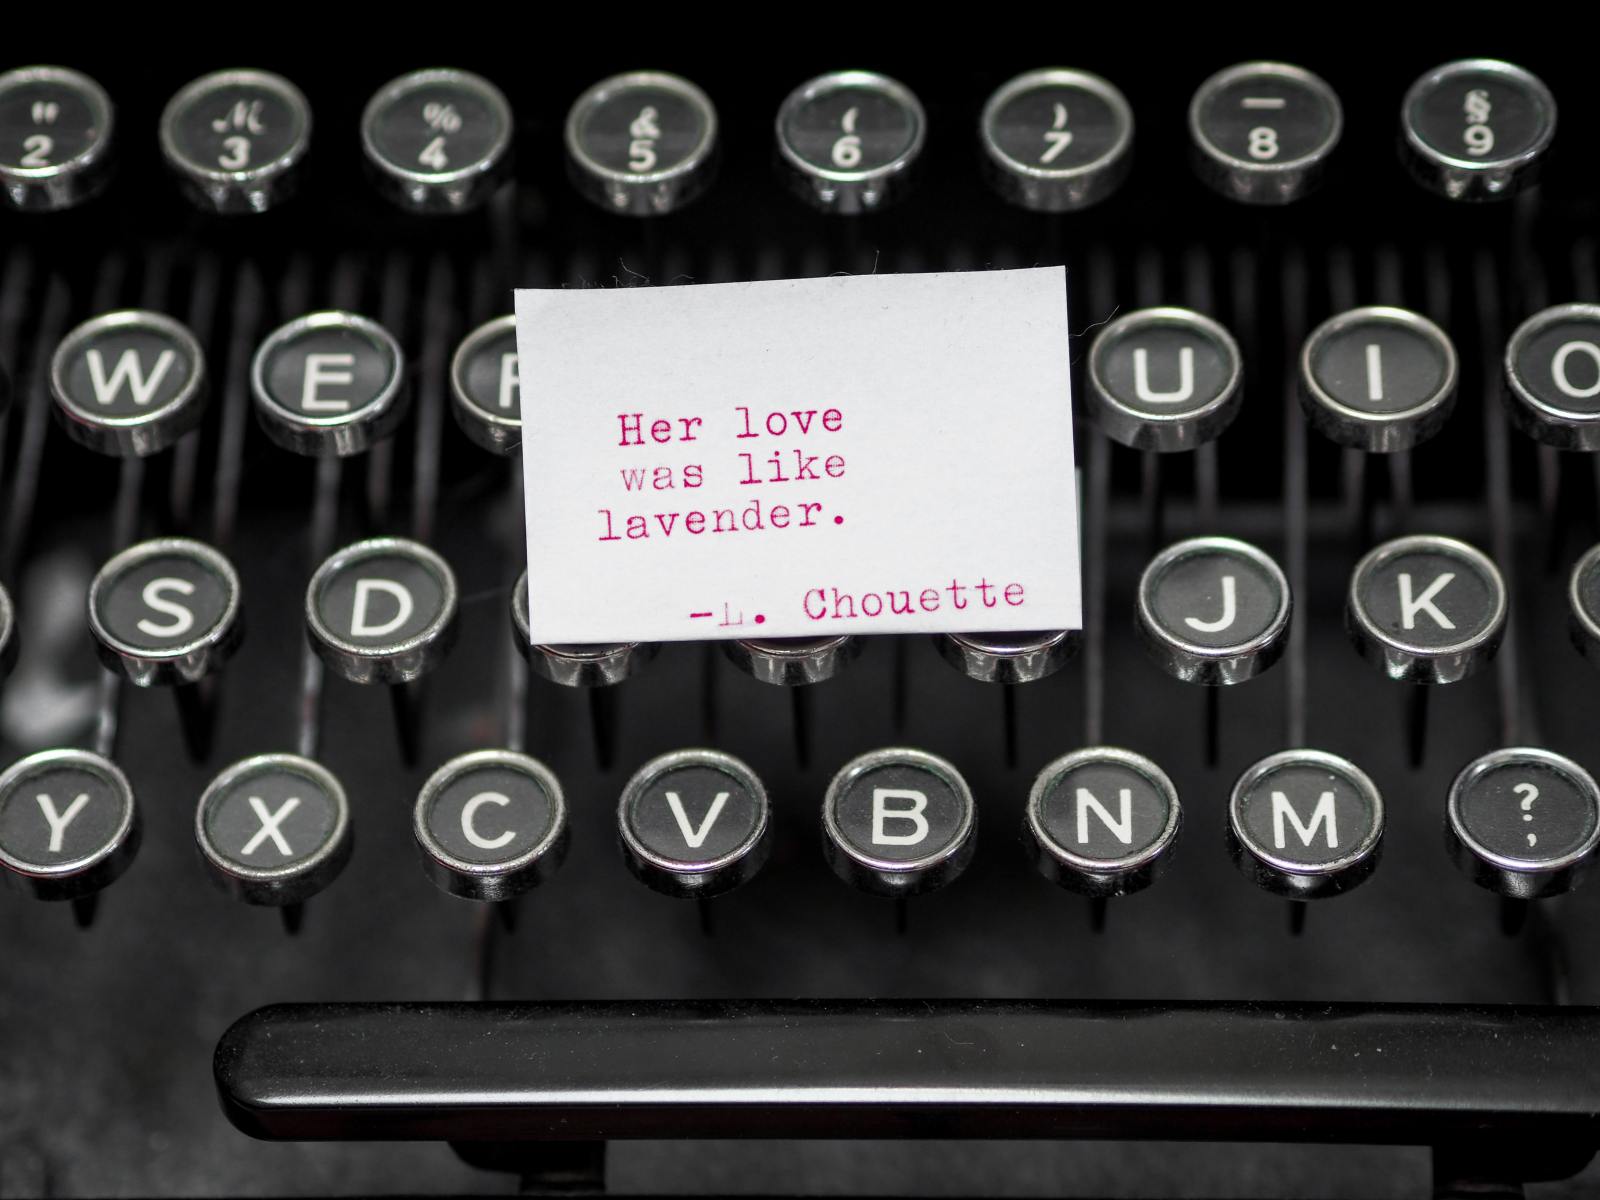 " 2 3 % 4 & 5 ( 6 ) 7 — 8 § 9
W E U I O
Her love
was like
lavender.
-L. Chouette
S D J K
Y X C V B N M ? ,